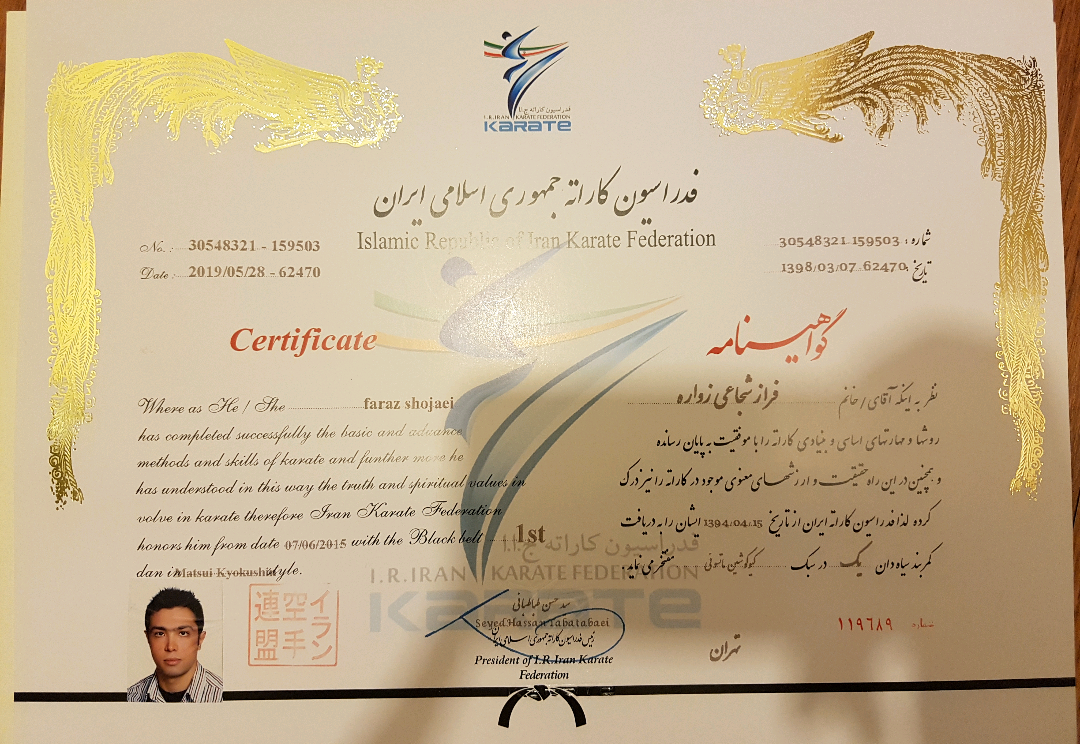 فدراسیون کاراته ج.ا.ا
I.R.IRAN KARATE FEDERATION
KARATE
فدراسیون کاراته جمهوری اسلامی ایران
Islamic Republic of Iran Karate Federation
No. 30548321 - 159503
Date : 2019/05/28 - 62470
شماره : 30548321 159503
تاریخ : 1398/03/07 62470
Certificate
Where as He / She faraz shojaei
has completed successfully the basic and advance
methods and skills of karate and funther more he
has understood in this way the truth and spiritual values in
volve in karate therefore Iran Karate Federation
honors him from date 07/06/2015 with the Black belt 1st
dan in Matsui Kyokushin style.
گواهینامه
نظر به اینکه آقای / خانم فراز شجاعی زواره
روشها و مهارتهای اساسی و بنیادی کاراته را با موفقیت به پایان رسانده
و همچنین در این راه حقیقت و ارزشهای معنوی موجود در کاراته را نیز درک
کرده لذا فدراسیون کاراته ایران از تاریخ 1394/04/15 ایشان را به دریافت
کمربند سیاه دان یک در سبک کیوکوشین ماتسوئی مفتخر می نماید.
فدراسیون کاراته ج.ا.ا
I.R.IRAN KARATE FEDERATION
KARATE
イラン
空手
連盟
سید حسن طباطبائی
Seyed Hassan Tabatabaei
رئیس فدراسیون کاراته جمهوری اسلامی ایران
President of I.R.Iran Karate
Federation
شماره ۱۱۹۶۸۹
تهران